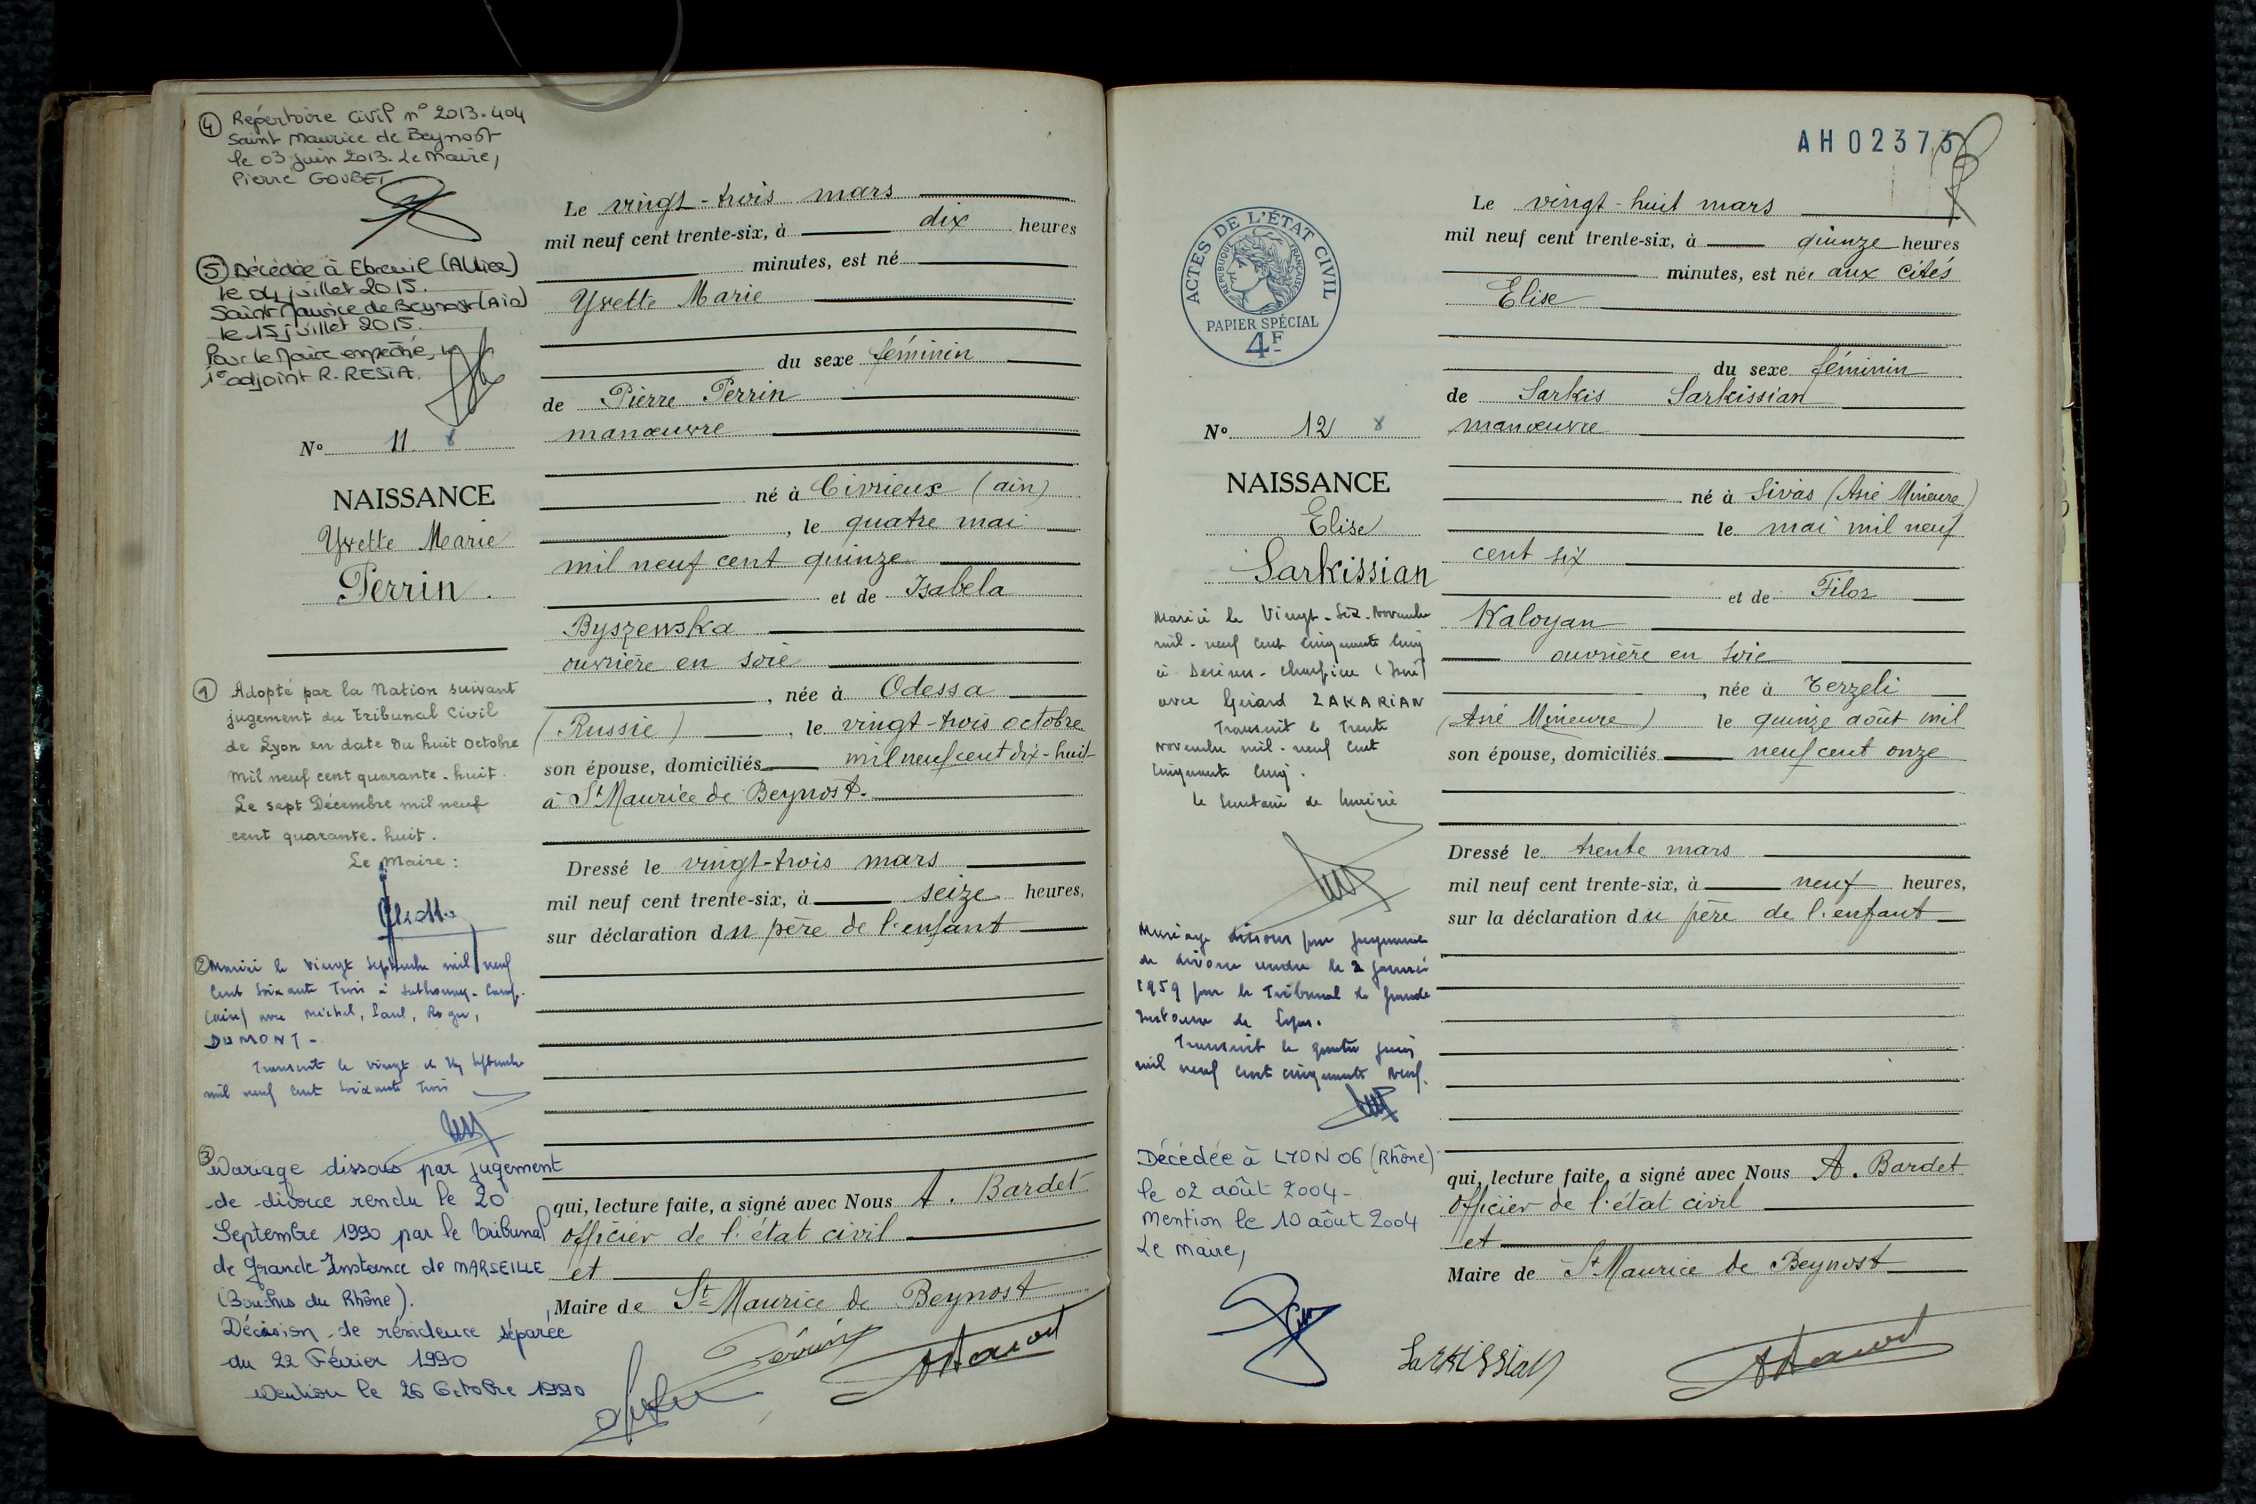 ④ Répertoire Civil n° 2013.404
Saint Maurice de Beynost
le 03 juin 2013. Le Maire,
Pierre GOUBET
⑤ Décédée à Ebreuil (Allier)
le 04 juillet 2015.
Saint Maurice de Beynost (Ain)
le 15 juillet 2015.
Pour le Maire empêché, le
1e adjoint R. RESTA.
N° 11
NAISSANCE
Yvette Marie
Perrin.
① Adopté par la Nation suivant
jugement du Tribunal Civil
de Lyon en date du huit Octobre
mil neuf cent quarante-huit.
Le sept Décembre mil neuf
cent quarante-huit.
Le Maire :
② Marié le vingt Septembre mil neuf
cent soixante Trois à Sathonay-Camp
(Ain) avec Michel, Paul, Roger,
DUMONT-
Transcrit le vingt et un Septembre
mil neuf cent soixante Trois
③ Mariage dissous par jugement
de divorce rendu le 20
Septembre 1990 par le Tribunal
de Grande Instance de MARSEILLE
(Bouches du Rhône).
Décision de résidence séparée
du 22 Février 1990
Mention le 26 Octobre 1990
Le vingt-trois mars
mil neuf cent trente-six, à dix heures
minutes, est né
Yvette Marie
du sexe féminin
de Pierre Perrin
manœuvre
né à Civrieux (ain)
, le quatre mai
mil neuf cent quinze
et de Isabela
Byszewska
ouvrière en soie
, née à Odessa
(Russie) , le vingt-trois octobre
son épouse, domiciliés mil neuf cent dix-huit
à St Maurice de Beynost.
Dressé le vingt-trois mars
mil neuf cent trente-six, à seize heures,
sur déclaration du père de l'enfant
qui, lecture faite, a signé avec Nous A. Bardet
officier de l'état civil
et
Maire de St Maurice de Beynost
Perrin
AH02373
ACTES DE L'ÉTAT CIVIL
RÉPUBLIQUE FRANÇAISE
PAPIER SPÉCIAL
4F
N° 12
NAISSANCE
Elise
Sarkissian
Mariée le Vingt-Six-Novembre
mil-neuf cent cinquante cinq
à Décines-Charpieu (Isère)
avec Gérard ZAKARIAN
Transcrit le Trente
Novembre mil-neuf cent
cinquante cinq.
le Secrétaire de Mairie
Mariage dissous par jugement
de divorce rendu le 2 janvier
1959 par le Tribunal de Grande
Instance de Lyon.
Transcrit le quatre juin
mil neuf cent cinquante neuf.
Décédée à LYON 06 (Rhône)
le 02 août 2004-
Mention le 10 août 2004
Le Maire,
Le vingt-huit mars
mil neuf cent trente-six, à quinze heures
minutes, est née aux Cités
Elise
du sexe féminin
de Sarkis Sarkissian
manœuvre
né à Sivas (Asie Mineure)
le mai mil neuf
cent six
et de Filor
Kaloyan
ouvrière en soie
, née à Terzeli
(Asie Mineure) le quinze août mil
son épouse, domiciliés neuf cent onze
Dressé le trente mars
mil neuf cent trente-six, à neuf heures,
sur la déclaration du père de l'enfant
qui, lecture faite, a signé avec Nous A. Bardet
officier de l'état civil
et
Maire de St Maurice de Beynost
Sarkissian